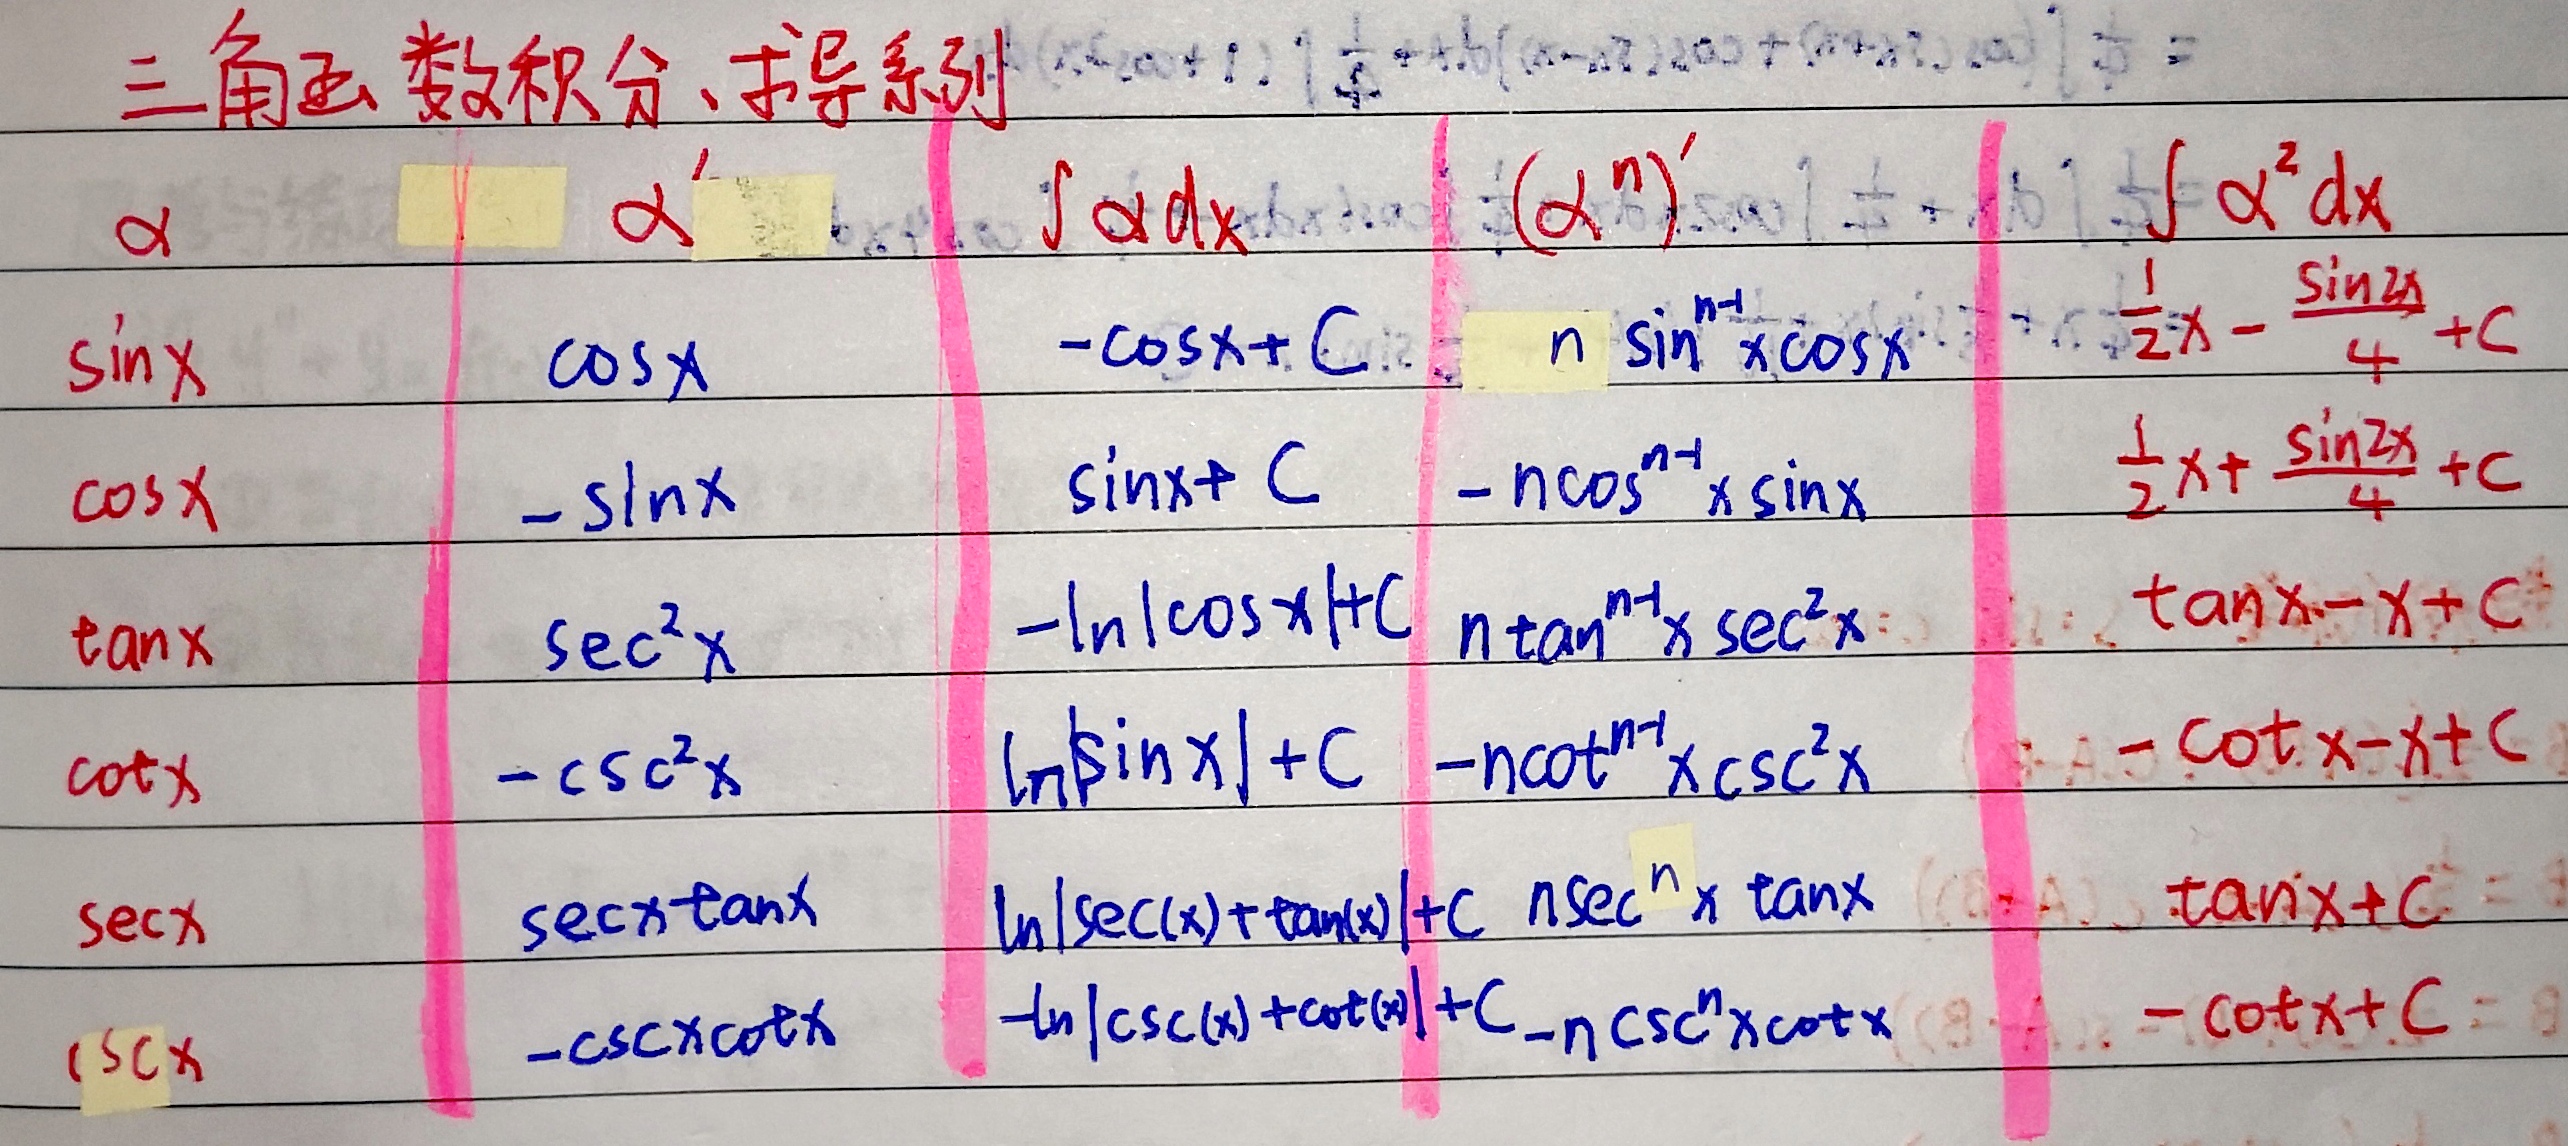 三角函数积分、求导系列
α α′ ∫αdx (αⁿ)′ ∫α²dx
sinx cosx -cosx+C n sinⁿ⁻¹xcosx 1/2x - sin2x/4 +C
cosx -sinx sinx+C -ncosⁿ⁻¹xsinx 1/2x + sin2x/4 +C
tanx sec²x -ln|cosx|+C ntanⁿ⁻¹x sec²x tanx-x+C
cotx -csc²x ln|sinx|+C -ncotⁿ⁻¹xcsc²x -cotx-x+C
secx secxtanx ln|sec(x)+tan(x)|+C nsecⁿx tanx tanx+C
cscx -cscxcotx -ln|csc(x)+cot(x)|+C -ncscⁿxcotx -cotx+C